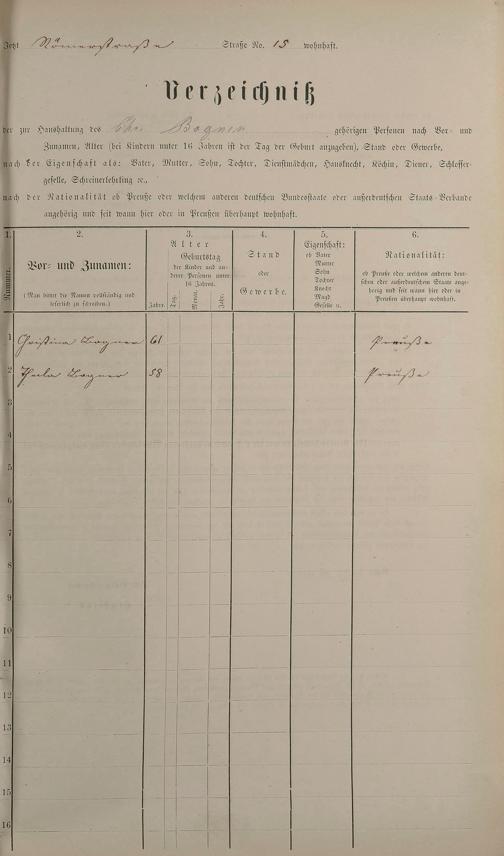 Jetzt Römerstraße Straße No. 15 wohnhaft.
Verzeichniß
der zur Haushaltung des Chr. Bogner gehörigen Personen nach Vor- und
Zunamen, Alter (bei Kindern unter 16 Jahren ist der Tag der Geburt anzugeben), Stand oder Gewerbe,
nach der Eigenschaft als: Vater, Mutter, Sohn, Tochter, Dienstmädchen, Hausknecht, Köchin, Diener, Schlosser-
geselle, Schreinerlehrling ꝛc.,
nach der Nationalität ob Preuße oder welchem anderen deutschen Bundesstaate oder außerdeutschen Staats-Verbande
angehörig und seit wann hier oder in Preußen überhaupt wohnhaft.
1.
Nummer.
2.
Vor- und Zunamen:
(Man bittet die Namen vollständig und
leserlich zu schreiben.)
3.
Alter
Geburtstag
der Kinder und an-
derer Personen unter
16 Jahren.
Jahre.
Tag.
Monat.
Jahr.
4.
Stand
oder
Gewerbe.
5.
Eigenschaft:
ob Vater
Mutter
Sohn
Tochter
Knecht
Magd
Geselle u.
6.
Nationalität:
ob Preuße oder welchem anderen deut-
schen oder außerdeutschen Staate ange-
hörig und seit wann hier oder in
Preußen überhaupt wohnhaft.
1 Christina Bogner 61 Preuße
2 Thekla Bogner 58 Preuße
3
4
5
6
7
8
9
10
11
12
13
14
15
16